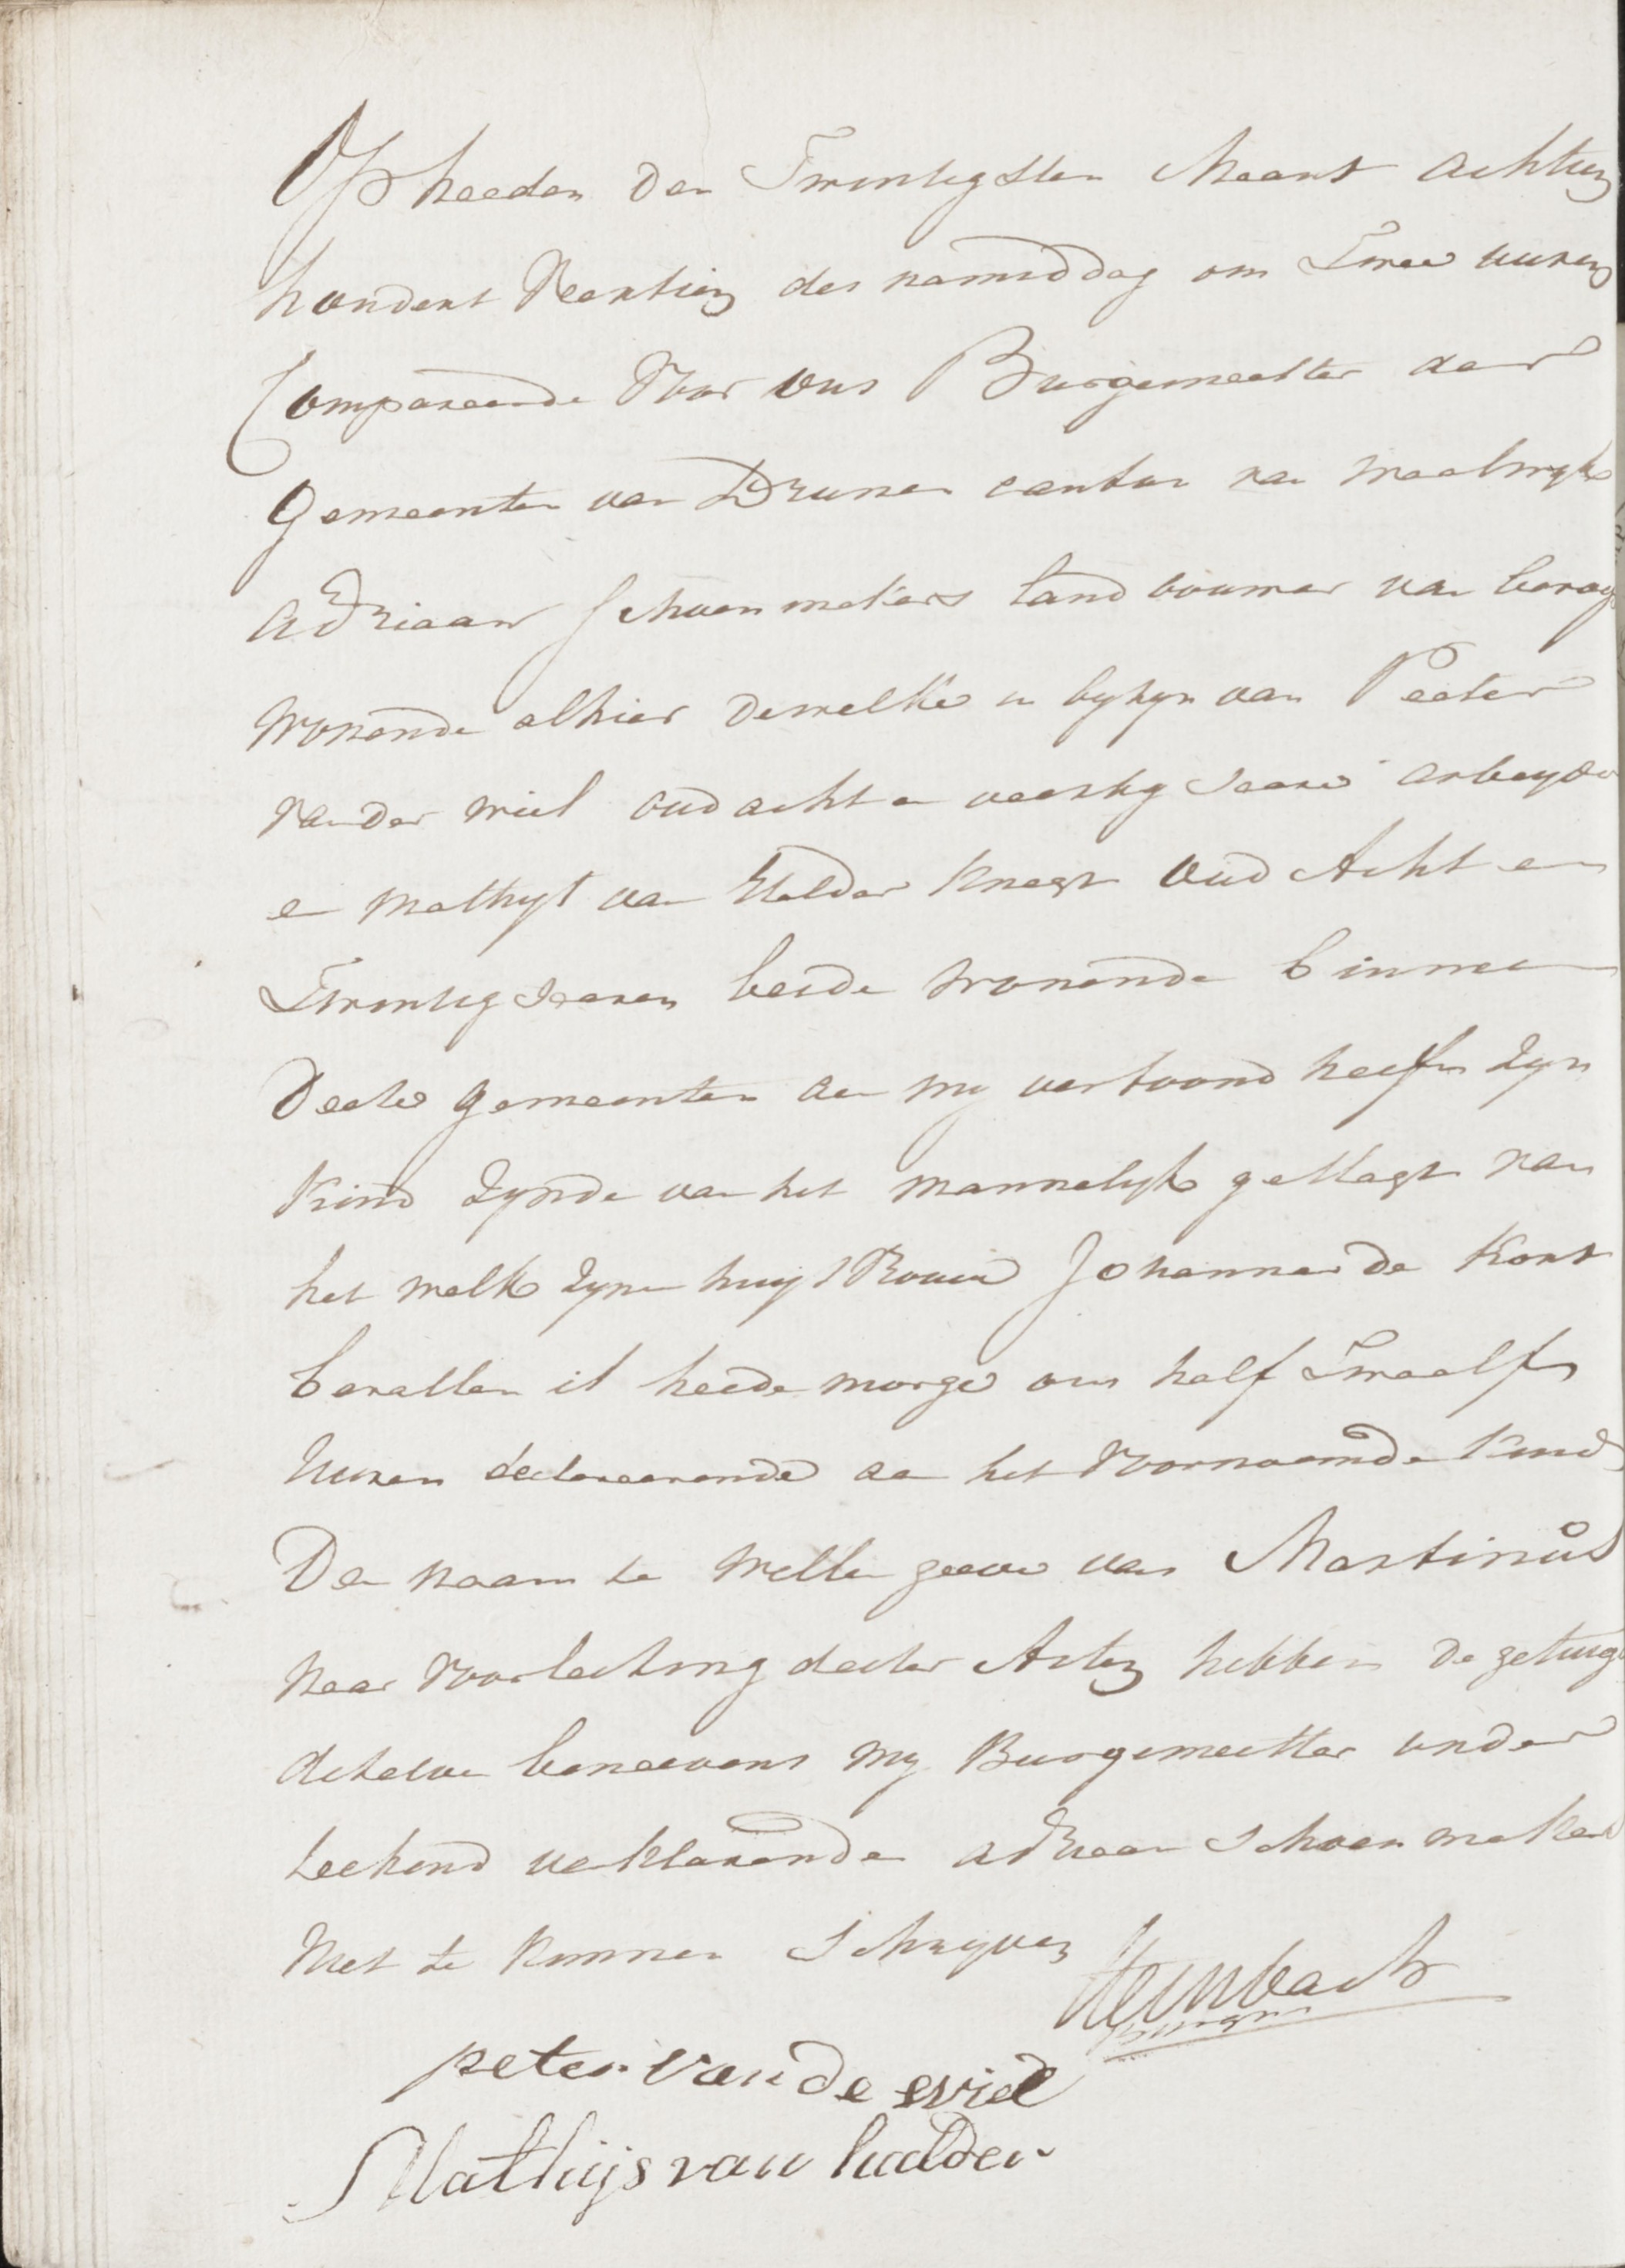 Op heeden den Twintigsten Maart achtien
hondert Veertien des namiddag om Twee uuren
Compareerde Voor ons Burgemeester der
gemeenten van Drunen canton van Waalwyk
Adriaan Schoenmakers land bouwer van beroep
Wonende alhier dewelke in byzyn van Peeter
van der Wiel oud acht en veertig Jaare arbeyder
en Mathys van Halder Knegt oud Acht en
Twintig Jaaren beide wonende binnen
Deese gemeenten aen my vertoond heeft zyn
Kind zynde van het mannelyk geslagt van
het welk zyne huysvrouw Johanna de Kort
bevallen is heede morge om half Twaalf
Uuren declareerende aen het voornoemde Kind
Den naam te willen geeve van Martinus
Naar Voorleesing deeser Acten hebben de getuige
deselve beneevens my Burgemeester onder
teekend verklarende adriaan Schoenmakers
Niet te Kunnen Schryven
peter van de wiel
Mathijs van halder